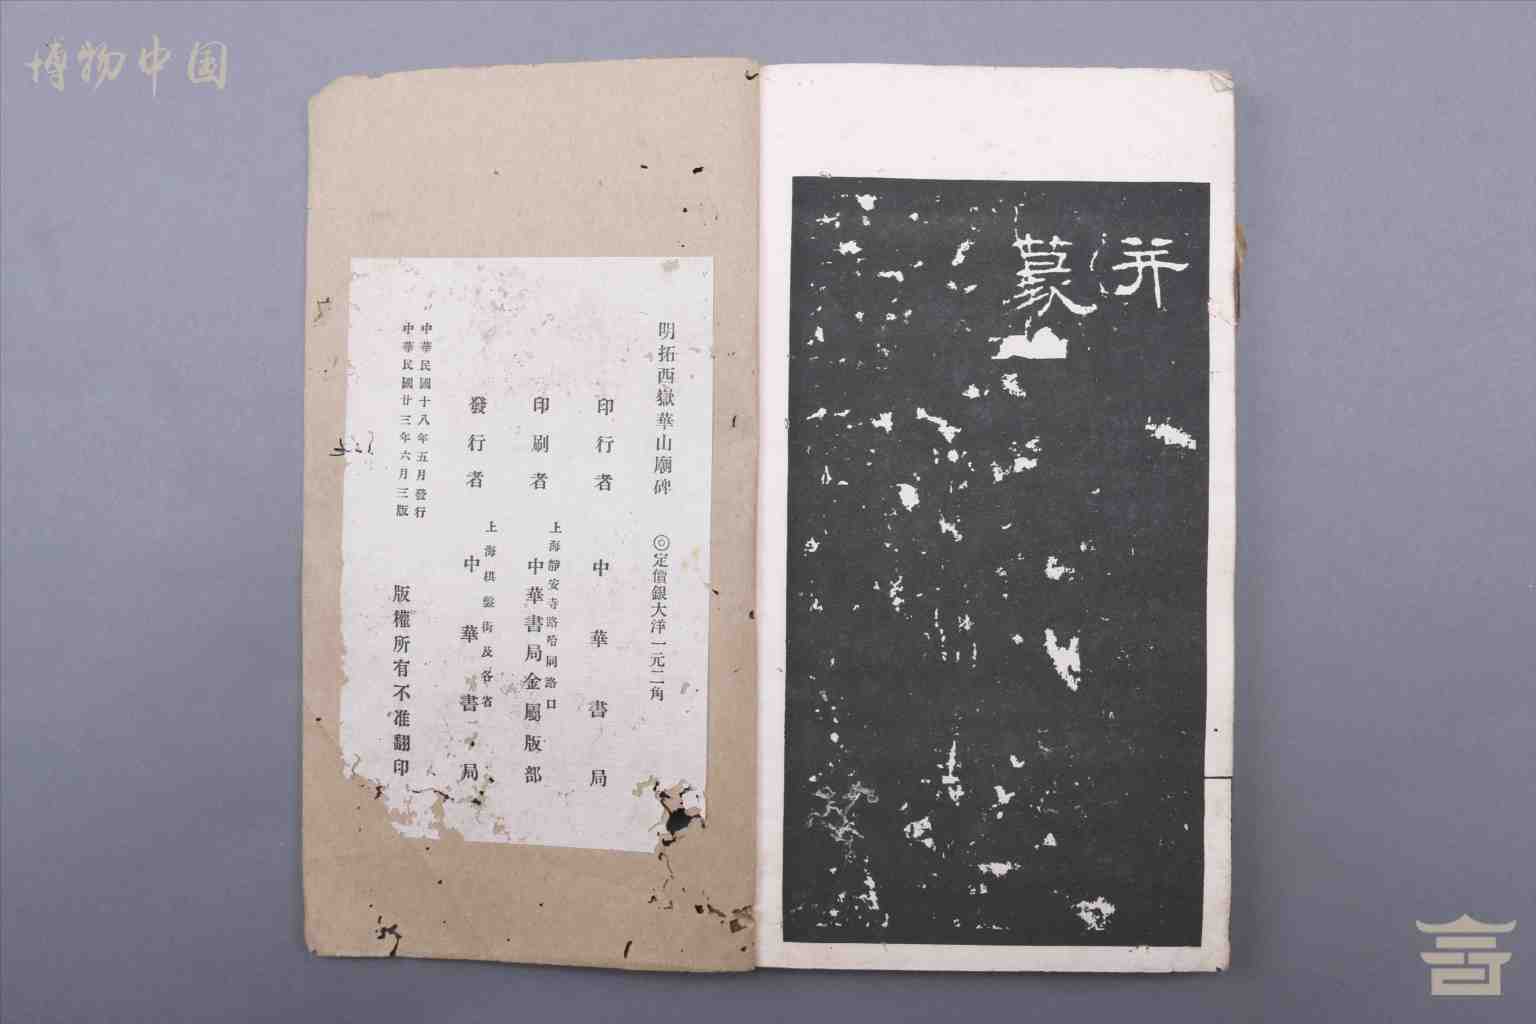 博物中国
并
篆
明拓西嶽華山廟碑 ◎定價銀大洋一元二角
印行者 中華書局
上海靜安寺路哈同路口
印刷者 中華書局金屬版部
上海棋盤街及各省
發行者 中華書局
中華民國十八年五月發行
中華民國廿三年六月三版
版權所有不准翻印